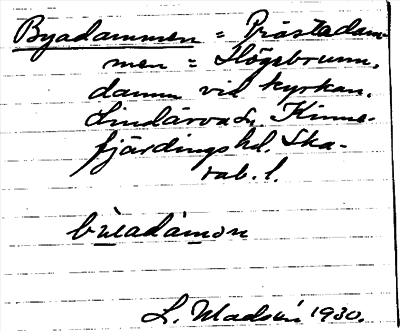 Byadammen = Prästadam-
men = Högsbrunn,
damm vid kyrkan.
Lindärva s., Kinne-
fjärdings hd. Ska-
rab. l.
bẁadámɔn
L. Madsén 1930.